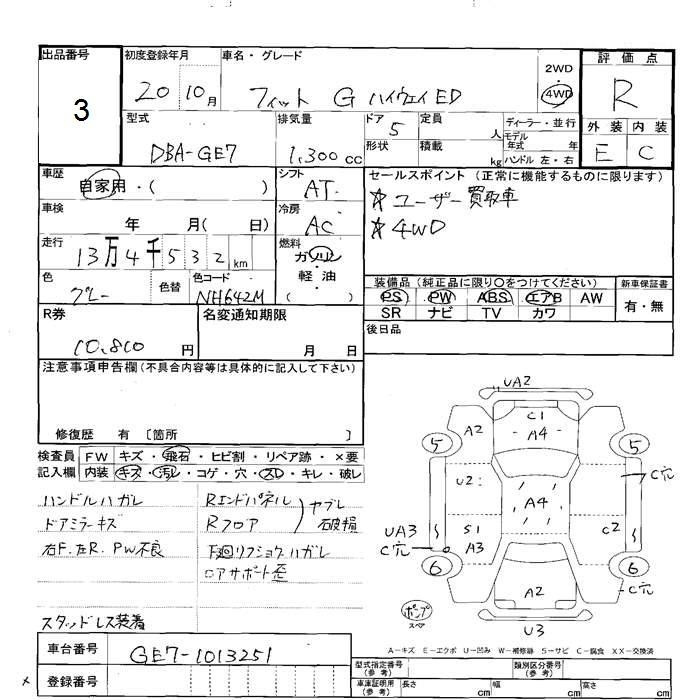 出品番号 初度登録年月 車名・グレード 評価点
3 20 10月 フィット G ハイウェイED 2WD・4WD R
型式 排気量 ドア 5 定員 人 ディーラー・並行 外装 内装
DBA-GE7 1,300cc 形状 積載 kg モデル年式 年 ハンドル 左・右 E C
車歴 シフト セールスポイント (正常に機能するものに限ります)
自家用・( ) AT ☆ユーザー買取車
車検 冷房 ☆4WD
年 月( 日) AC
走行 燃料
13万4千532km ガソリン・軽油 ( )
色 色替 色コード 装備品(純正品に限り○をつけてください) 新車保証書
グレー NH642M PS PW ABS エアB AW 有・無
R券 名変通知期限 SR ナビ TV カワ
10,810 円 月 日 後日品
注意事項申告欄(不具合内容等は具体的に記入して下さい)
修復歴 有 〔箇所 〕
検査員 FW キズ・飛石・ヒビ割・リペア跡・×要
記入欄 内装 キズ・汚レ・コゲ・穴・スレ・キレ・破レ
ハンドルハガレ Rエンドパネル ヤブレ
ドアミラーキズ Rフロア 破損
右F.左R.PW不良 下廻リフショクハガレ
ロアサポート歪
スタッドレス装着
車台番号 GE7-1013251
× 登録番号
UA2
C1
A2 A4
5 5
U2 C穴
A4
UA3 S1 C2
C穴 A3
6 6
A2 C穴
ポンプ
スペア U3
A-キズ E-エクボ U-凹み W-補修跡 S-サビ C-腐食 XX-交換済
型式指定番号(参考) 類別区分番号(参考)
車庫証明用(参考) 長さ cm 幅 cm 高さ cm